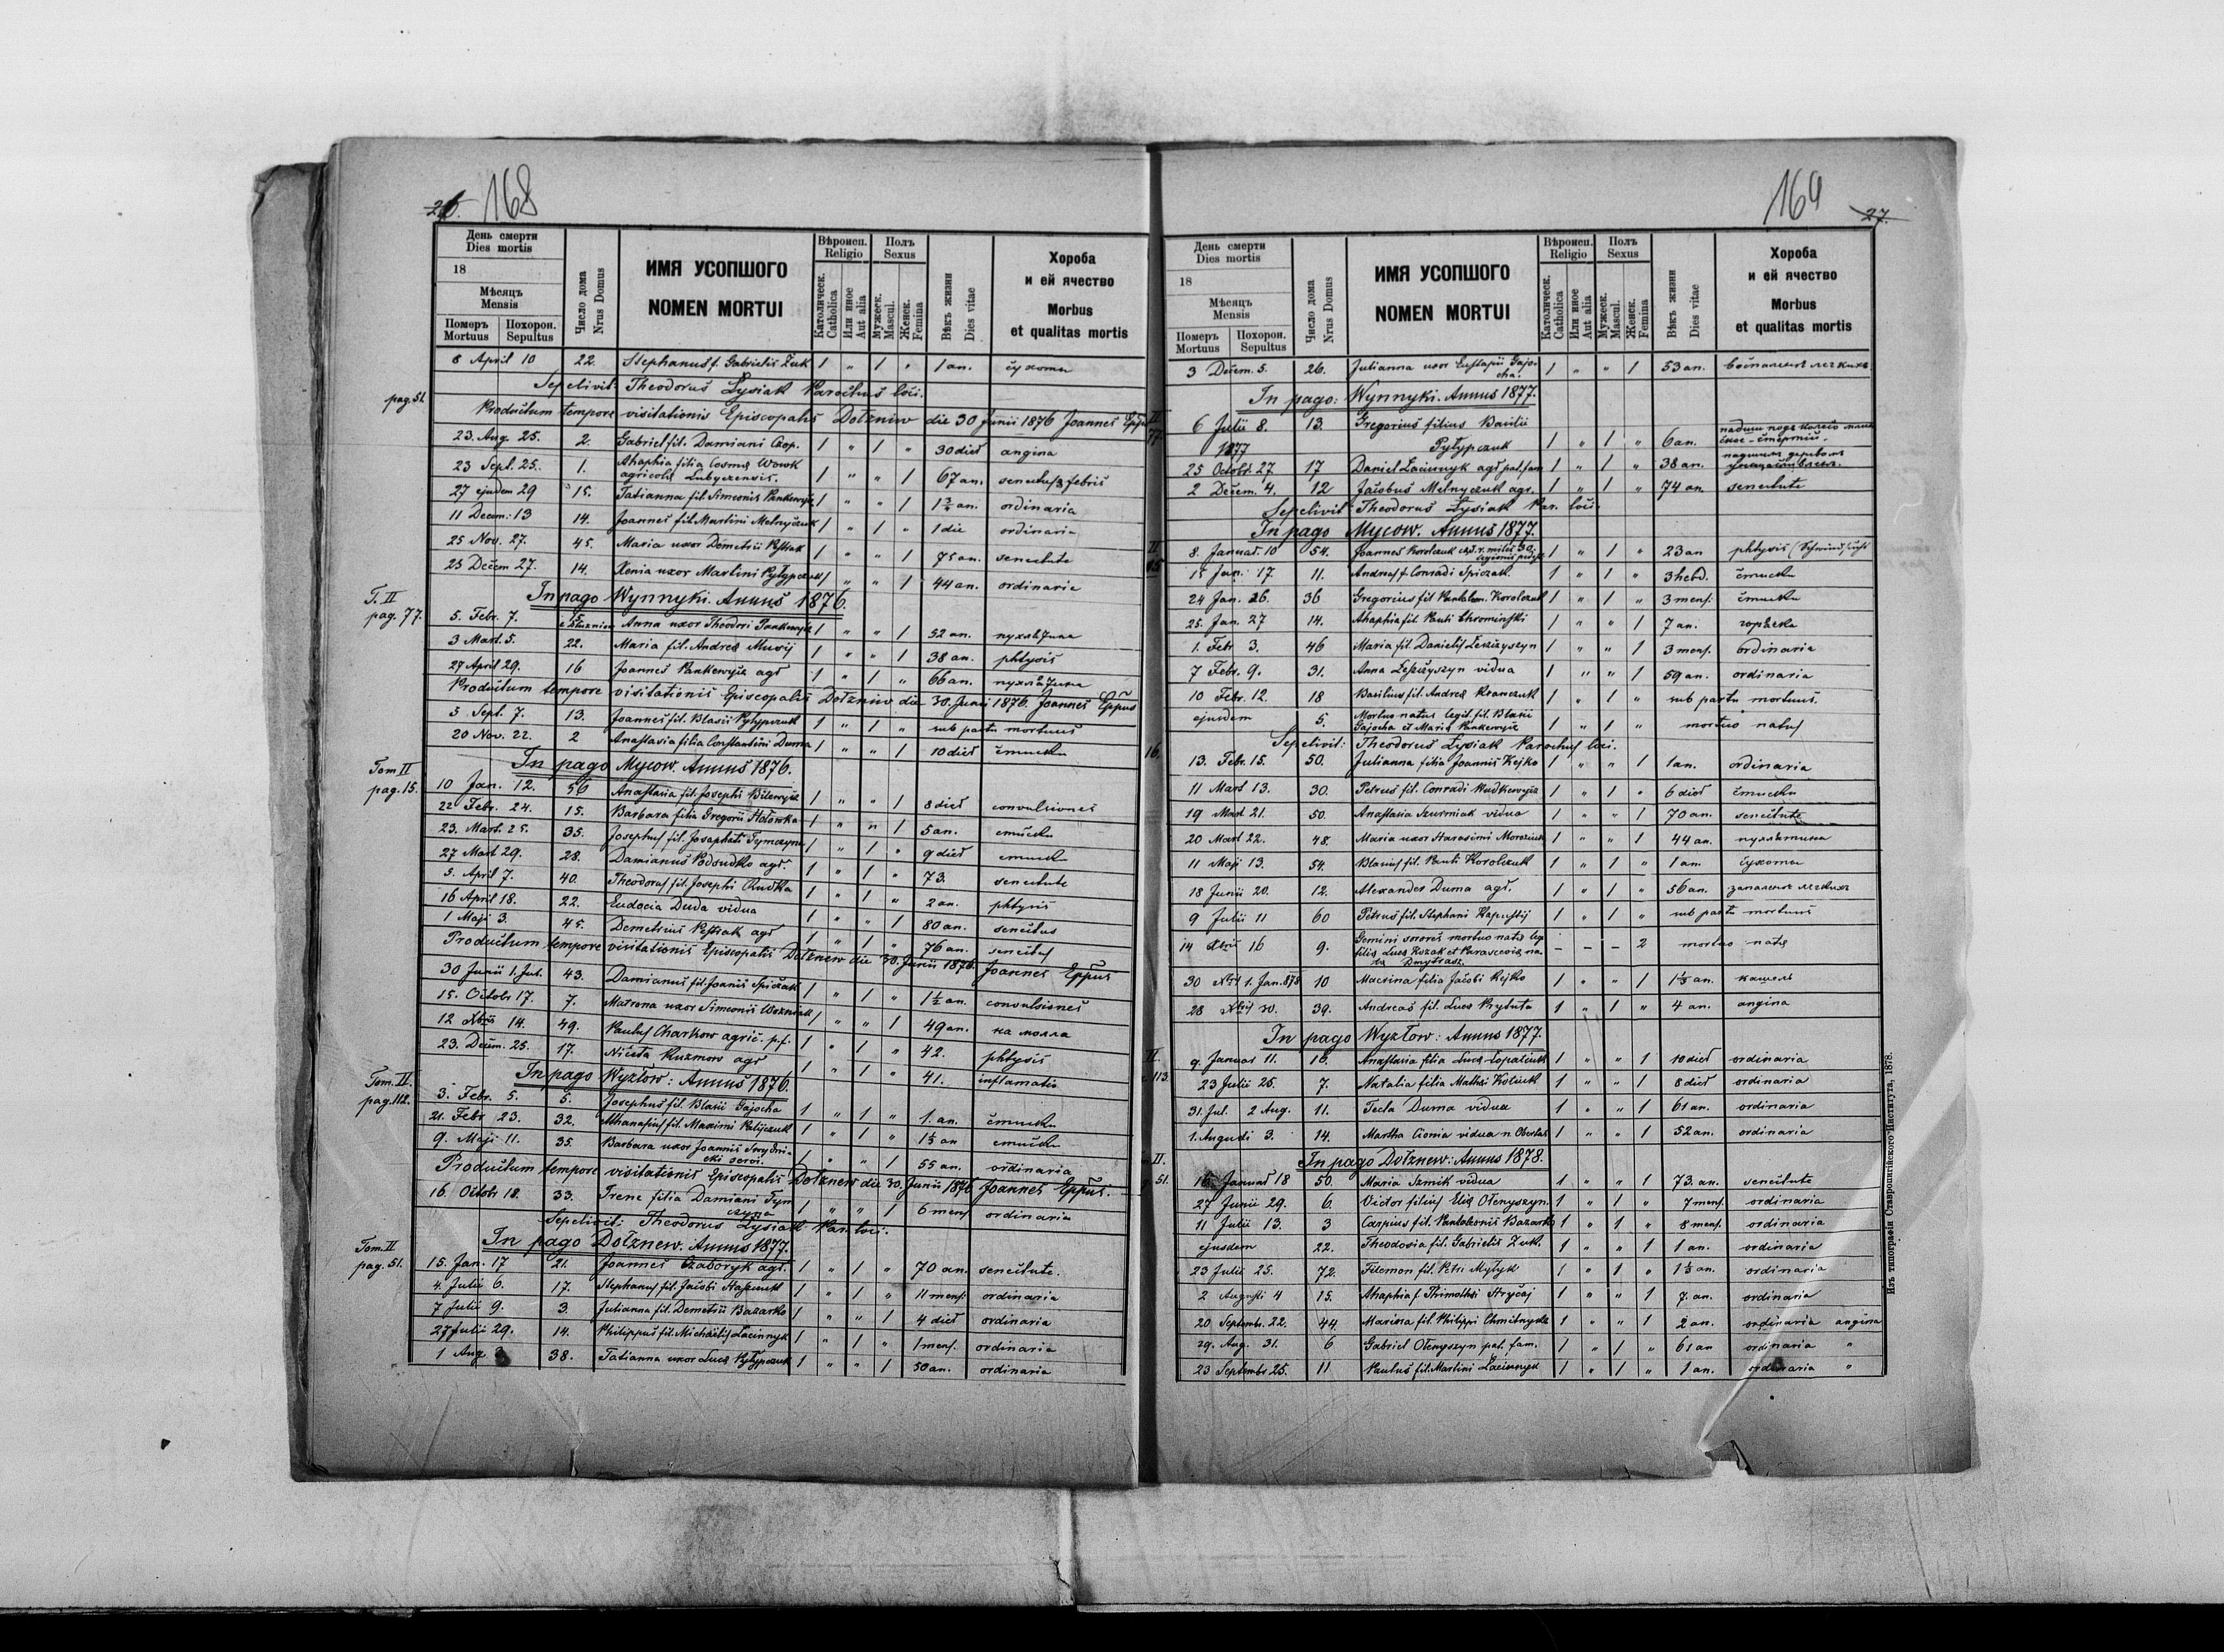 26. 168
День смерти
Dies mortis
18
Мѣсяцъ
Mensis
Померъ Похорон.
Mortuus Sepultus
Число дома
Nrus Domus
ИМЯ УСОПШОГО
NOMEN MORTUI
Вѣроисп.
Religio
Католическ.
Catholica
Или иное
Aut alia
Полъ
Sexus
Мужеск.
Mascul.
Женск.
Femina
Вѣкъ жизни
Dies vitae
Хороба
и ей ячество
Morbus
et qualitas mortis
8 April 10 22. Stephanus f. Gabrielis Zuk 1 " 1 " 1 an. сухоты
Sepelivit Theodorus Łysiak Parochus loci.
pag. 51.
Productum tempore visitationis Episcopalis Dołzniw die 30 Junii 1876 Joannes Eppus
23. Aug. 25. 2. Gabriel fil. Damiani Czop. 1 " 1 " 30 dies angina
23 Sept. 25. 1. Ahaphia filia Cosmæ Wowk
agricolæ Lubyczensis. 1 " " 1 67 an. senectus febris
27 ejusdem 29 15. Tatianna fil. Simeonis Pankewycz 1 " " 1 1½ an. ordinaria
11 Decem: 13 14. Joannes fil. Martini Melnyczuk 1 " 1 " 1 die ordinaria
25 Nov. 27. 45. Maria uxor Demetrii Pestrak 1 " " 1 75 an. senectute
25 Decem 27. 14. Xenia uxor Martini Pyłypczuk 1 " " 1 44 an. ordinaria
In pago Wynnyki. Annus 1876.
T. II
pag. 77.
5. Febr. 7. Anna uxor Theodori Pankewycz 1 " " 1 52 an. пухлѣтина
3 Mart. 5. 22. Maria fil. Andreæ Musij 1 " " 1 38 an. phtysis
27 April 29. 16 Joannes Pankewycz agr 1 " 1 " 66 an. пухлѣтина
Productum tempore visitationis Episcopalis Dołzniw die 30. Junii 1876. Joannes Eppus
5 Sept. 7. 13. Joannes fil. Blasii Pyłypczuk 1 " 1 " sub partu mortuus
20 Nov. 22. 2 Anastasia filia Constantini Duma 1 " " 1 10 dies
In pago Mycow. Annus 1876.
Tom II
pag. 15.
10 Jan. 12. 56 Anastasia fil. Josephi Bilewycz 1 " " 1 8 dies convulsiones
22 Febr. 24. 15. Barbara filia Gregorii Hołowka 1 " " 1 5 an.
23. Mart. 25. 35. Josephus fil. Josaphati Tymczyna 1 " 1 " 9 dies
27 Mart 29. 28. Damianus Podsudko agr. 1 " 1 " 73. senectute
5. April 7. 40. Theodorus fil. Josephi Rudka 1 " 1 " 2 an. phtysis
16 April 18. 22. Eudocia Duda vidua 1 " " 1 80 an. senectus
1 Maji 3. 45. Demetrius Pestrak agr 1 " 1 " 76 an. senectus
Productum tempore visitationis Episcopalis Dołznew die 30. Junii 1876. Joannes Eppus
30 Junii 1. Jul. 43. Damianus fil. Joannis Spiczak 1 " 1 " 1½ an. convulsiones
15. Octobr 17. 7. Matrona uxor Simeonis Wozniak 1 " " 1 49 an.
12 Xbris 14. 49. Paulus Charkow agric. p.f. 1 " 1 " 42. phtysis
23. Decem. 25. 17. Niceta Kuzmow agr 1 " 1 " 41. inflamatio
In pago Wyzłow: Annus 1876.
Tom. II.
pag. 112.
3. Febr. 5. 5. Josephus fil. Blasii Gajocha 1 " 1 " 1. an.
21. Febr. 23. 32. Athanasius fil. Maximi Palijczuk 1 " 1 " 1½ an
9. Maji 11. 35. Barbara uxor Joannis 1 " " 1 55 an. ordinaria
Productum tempore visitationis Episcopalis Dołznew die 30. Junii 1876 Joannes Eppus.
16. Octobr 18. 33. Irene filia Damiani Tym
czyna 1 " " 1 6 mens ordinaria
Sepelivit: Theodorus Łysiak Par. loci:
In pago Dołznew. Annus 1877.
Tom. II
pag. 51.
15. Jan. 17 21. Joannes Czaboryk agr. 1 " 1 " 70 an. senectute.
4. Julii 6. 17. Stephanus fil. Jacobi 1 " 1 " 11 mens: ordinaria
7 Julii 9. 3. Julianna fil. Demetrii Bazarko 1 " " 1 4 dies ordinaria
27 Julii 29. 14. Philippus fil. Michaelis Lacinnyk 1 " 1 " 1 mens. ordinaria
1 Aug 3 38. Tatianna uxor Lucæ Pyłypczuk 1 " " 1 50 an. ordinaria
169 27.
День смерти
Dies mortis
18
Мѣсяцъ
Mensis
Померъ Похорон.
Mortuus Sepultus
Число дома
Nrus Domus
ИМЯ УСОПШОГО
NOMEN MORTUI
Вѣроисп.
Religio
Католическ.
Catholica
Или иное
Aut alia
Полъ
Sexus
Мужеск.
Mascul.
Женск.
Femina
Вѣкъ жизни
Dies vitae
Хороба
и ей ячество
Morbus
et qualitas mortis
3 Decem. 5. 26. Julianna uxor Eustapii Gajo-
cha. 1 " " 1 53 an.
In pago: Wynnyki. Annus 1877.
6 Julii 8. 13. Gregorius filius Basilii
1877 Pyłypczuk 1 " 1 " 6 an.
25 Octobr 27 17 Daniel Lacinnyk agr. pat. fam 1 " 1 " 38 an.
2 Decem. 4. 12 Jacobus Melnyczuk agr. 1 " 1 " 74 an. senectute
Sepelivit: Theodorus Łysiak Par. loci:
In pago Mycow. Annus 1877.
8. Januar. 10 54. Joannes Korolczuk 1 " 1 " 23 an phtysis (Schwindsucht
15 Jan: 17. 11. Andreas f. Conradi Spiczak. 1 " 1 " 3 hebd.
24 Jan. 26 36 Gregorius fil Pantalem. Korolczuk 1 " 1 " 3 mens:
25. Jan. 27 14. Ahaphia fil Pauli Chrominski 1 " " 1 7 an. горячка
1. Febr 3. 46 Maria fil. Danielis Leszczyszyn 1 " " 1 3 mens. ordinaria
7 Febr. 9. 31. Anna Leszczyszyn vidua 1 " " 1 59 an. ordinaria
10 Febr. 12. 18 Basilius fil. Andreæ Krawczuk 1 " 1 " sub partu mortuus.
ejusdem 5. Mortuo natus legit. fil. Blasii
Gajocha et Mariæ Pankewycz 1 " 1 " mortuo natus
Sepelivit: Theodorus Łysiak Parochus loci.
16.
13. Febr. 15. 50. Julianna filia Joannis Kejko 1 " " 1 1 an. ordinaria
11 Mart 13. 30. Petrus fil. Conradi Wudkewycz 1 " 1 " 6 dies
19 Mart 21. 50. Anastasia Szurmiak vidua 1 " " 1 70 an. senectute
20 Mart 22. 48. Maria uxor Harasimi Morozink 1 " " 1 44 an. пухлѣтина
11 Maji 13. 54. Blasius fil. Pauli Korolczuk 1 " 1 " 1 an. сухоты
18 Junii 20. 12. Alexander Duma agr. 1 " 1 " 56 an. запаленье легкихъ
9 Julii 11 60 Petrus fil. Stephani Kapustij 1 " 1 " sub partu mortuus
14 Xbris 16 9. Gemini sorores mortuo natæ leg
filiæ Lucæ Kozak et Parasceviæ na-
tæ Dmytrasz. – – – 2 mortuo natæ
30 Xbris 1. Jan. 878 10 Macrina filia Jacobi Kejko 1 " " 1 1½ an. кашель
28 Xbris 30. 39. Andreas fil. Lucæ Przybuta 1 " 1 " 4 an. angina
In pago Wyzłow: Annus 1877.
II.
113.
9. Januar 11. 16. Anastasia filia Lucæ Łopaciuk 1 " " 1 10 dies ordinaria
23 Julii 25. 7. Natalia filia Mathei Kościuk 1 " " 1 8 dies ordinaria
31. Jul. 2 Aug. 11. Tecla Duma vidua 1 " " 1 61 an. ordinaria
1. Augusti 3. 14. Martha Cionia vidua n. Obertas 1 " " 1 52 an. ordinaria
In pago Dołznew: Annus 1878.
II.
51.
16. Januar 18 50. Maria Szmik vidua 1 " " 1 73. an. senectute
27 Junii 29. 6. Victor filius Eliæ Ołenyszyn. 1 " 1 " 7 mens. ordinaria
11 Julii 13. 3 Carpius fil. Pantaleonis Bazarko 1 " 1 " 8 mens. ordinaria
ejusdem 22. Theodosia fil. Gabrielis Zuk. 1 " " 1 1 an. ordinaria
23 Julii 25. 72. Filemon fil. Petri Mytyk 1 " 1 " 1½ an. ordinaria
2 Augusti 4 15. Ahaphia f. Thimothei Hryćaj 1 " " 1 7. an. ordinaria
20 Septembr. 22. 44. Marina fil. Philippi Chmilnyckæ 1 " " 1 2 an. ordinaria angina
29. Aug. 31. 6 Gabriel Ołenyszyn pat. fam. 1 " 1 " 61 an ordinaria "
23 Septembr 25. 11. Paulus fil. Martini Łacinnyk 1 " 1 " 1 an. ordinaria "
Изъ типографіи Ставропигійского Института, 1878.